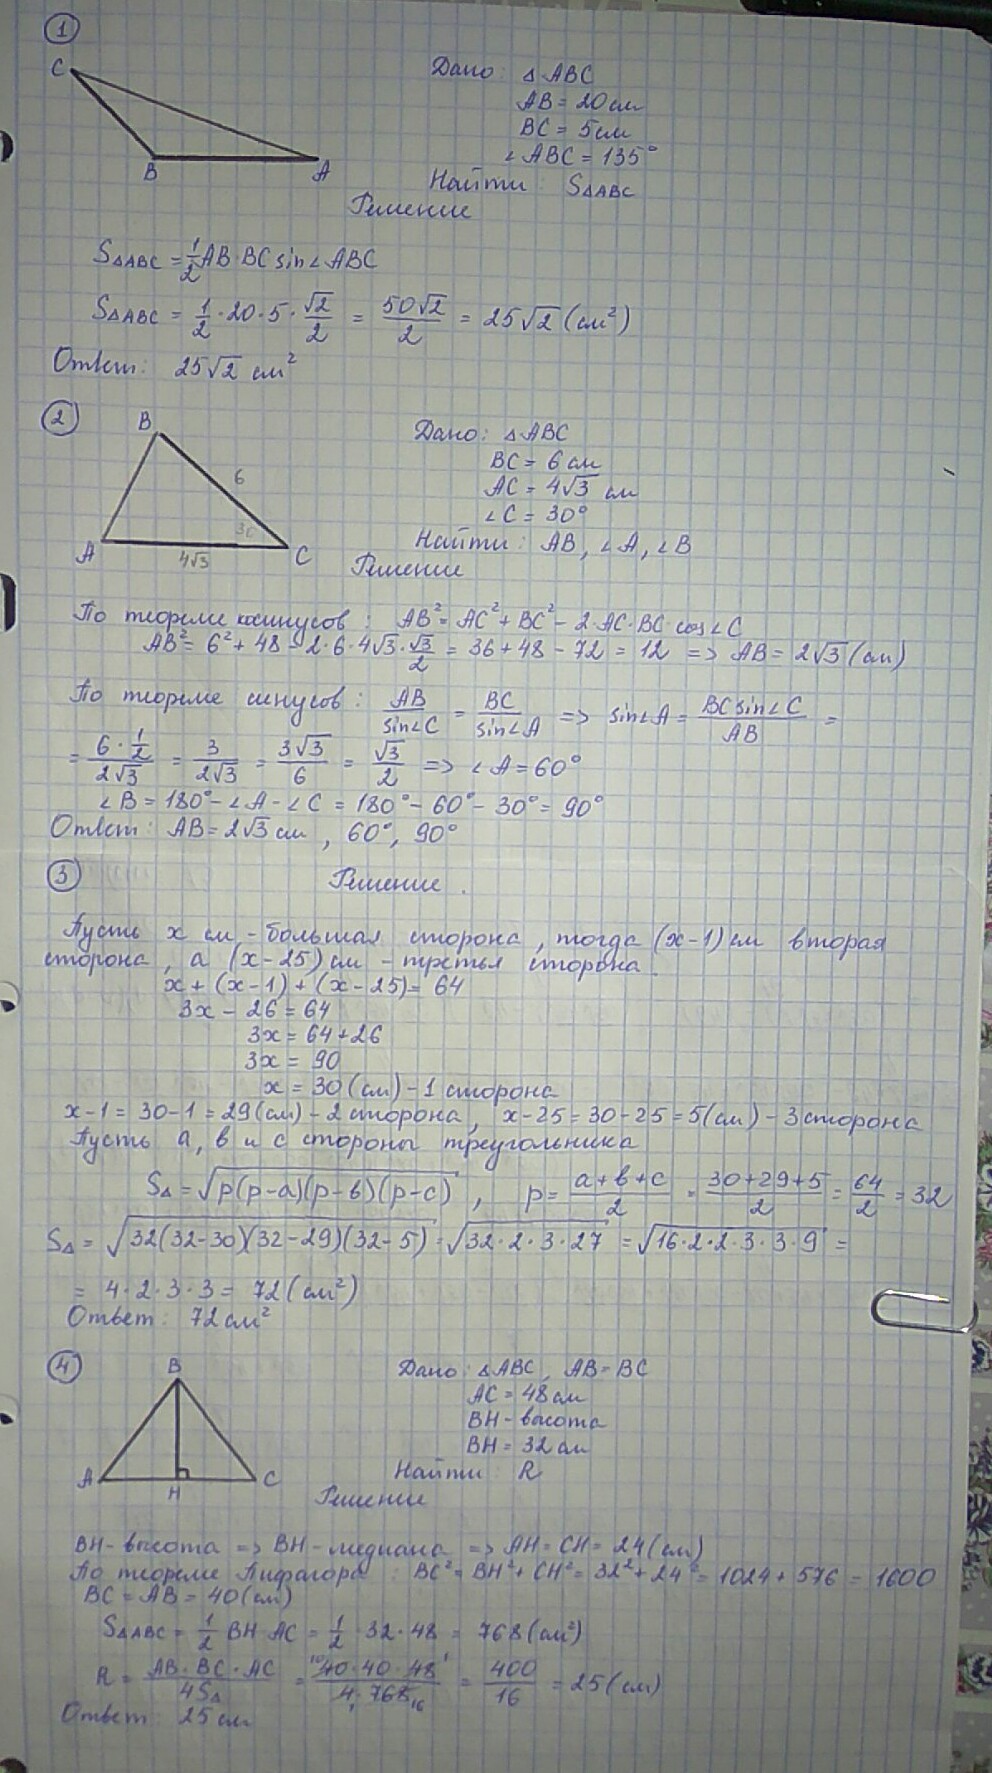 1
C
B
A
Дано: △ABC
AB = 20 см
BC = 5 см
∠ABC = 135°
Найти: S△ABC
Решение
S△ABC = 1/2 AB·BC sin∠ABC
S△ABC = 1/2 · 20 · 5 · √2/2 = 50√2/2 = 25√2 (см²)
Ответ: 25√2 см²
2
B
6
30
A
4√3
C
Дано: △ABC
BC = 6 см
AC = 4√3 см
∠C = 30°
Найти: AB, ∠A, ∠B
Решение
По теореме косинусов: AB² = AC² + BC² - 2·AC·BC·cos∠C
AB² = 6² + 48 - 2·6·4√3·√3/2 = 36 + 48 - 72 = 12 => AB = 2√3 (см)
По теореме синусов: AB/sin∠C = BC/sin∠A => sin∠A = BC sin∠C/AB =
= 6·1/2/2√3 = 3/2√3 = 3√3/6 = √3/2 => ∠A = 60°
∠B = 180° - ∠A - ∠C = 180° - 60° - 30° = 90°
Ответ: AB = 2√3 см, 60°, 90°
3
Решение.
Пусть x см - большая сторона, тогда (x-1) см вторая
сторона, а (x-25) см - третья сторона.
x + (x-1) + (x-25) = 64
3x - 26 = 64
3x = 64 + 26
3x = 90
x = 30 (см) - 1 сторона
x-1 = 30-1 = 29 (см) - 2 сторона, x-25 = 30-25 = 5 (см) - 3 сторона
Пусть a, b и c стороны треугольника
S△ = √p(p-a)(p-b)(p-c), p = a+b+c/2 = 30+29+5/2 = 64/2 = 32
S△ = √32(32-30)(32-29)(32-5) = √32·2·3·27 = √16·2·2·3·3·9 =
= 4·2·3·3 = 72 (см²)
Ответ: 72 см²
4
B
A
H
C
Дано: △ABC, AB = BC
AC = 48 см
BH - высота
BH = 32 см
Найти: R
Решение
BH - высота => BH - медиана => AH = CH = 24 (см)
По теореме Пифагора: BC² = BH² + CH² = 32² + 24² = 1024 + 576 = 1600
BC = AB = 40 (см)
S△ABC = 1/2 BH·AC = 1/2 · 32 · 48 = 768 (см²)
R = AB·BC·AC/4S△ = 10 40·40·48 1/4 1·768 16 = 400/16 = 25 (см)
Ответ: 25 см